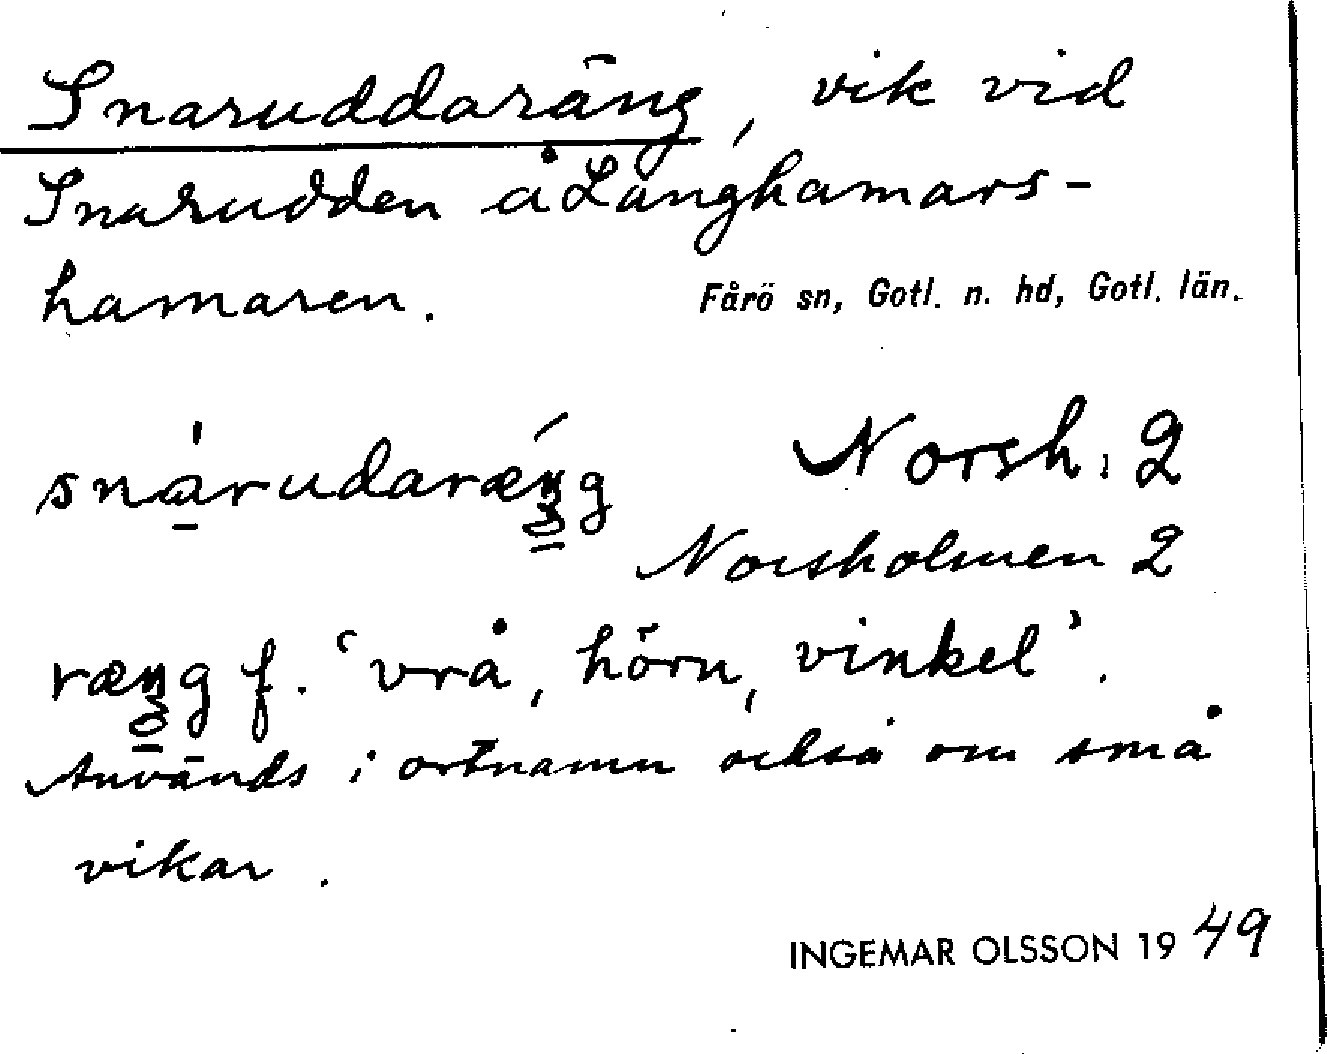 Snaruddaräng, vik vid
Snarudden å Langhamars-
hamaren.
Fårö sn, Gotl. n. hd, Gotl. län.
snàrudaræ´ŋg
Norsh. 2
Norsholmen 2
ræŋg f. 'vrå, hörn, vinkel'.
Används i ortnamn också om små
vikar.
INGEMAR OLSSON 1949